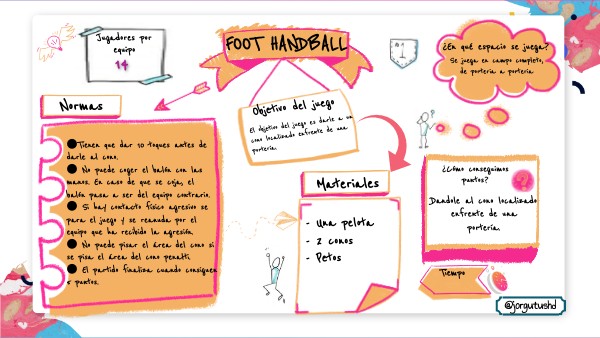 FOOT HANDBALL
Jugadores por
equipo
14
¿En qué espacio se juega?
Se juega en campo completo,
de portería a portería
Normas
●Tienen que dar 10 toques antes de
darle al cono.
● No puede coger el balón con las
manos. En caso de que se coja, el
balón pasa a ser del equipo contrario.
● Si hay contacto físico agresivo se
para el juego y se reanuda por el
equipo que ha recibido la agresión.
● No puede pisar el área del cono si
se pisa el área del cono penalti.
● El partido finaliza cuando consiguen
5 puntos.
Objetivo del juego
El objetivo del juego es darle a un
cono localizado enfrente de una
portería.
Materiales
- Una pelota
- 2 conos
- Petos
¿Cómo conseguimos
puntos?
Dandole al cono localizado
enfrente de una
portería
Tiempo
@jorgutushd